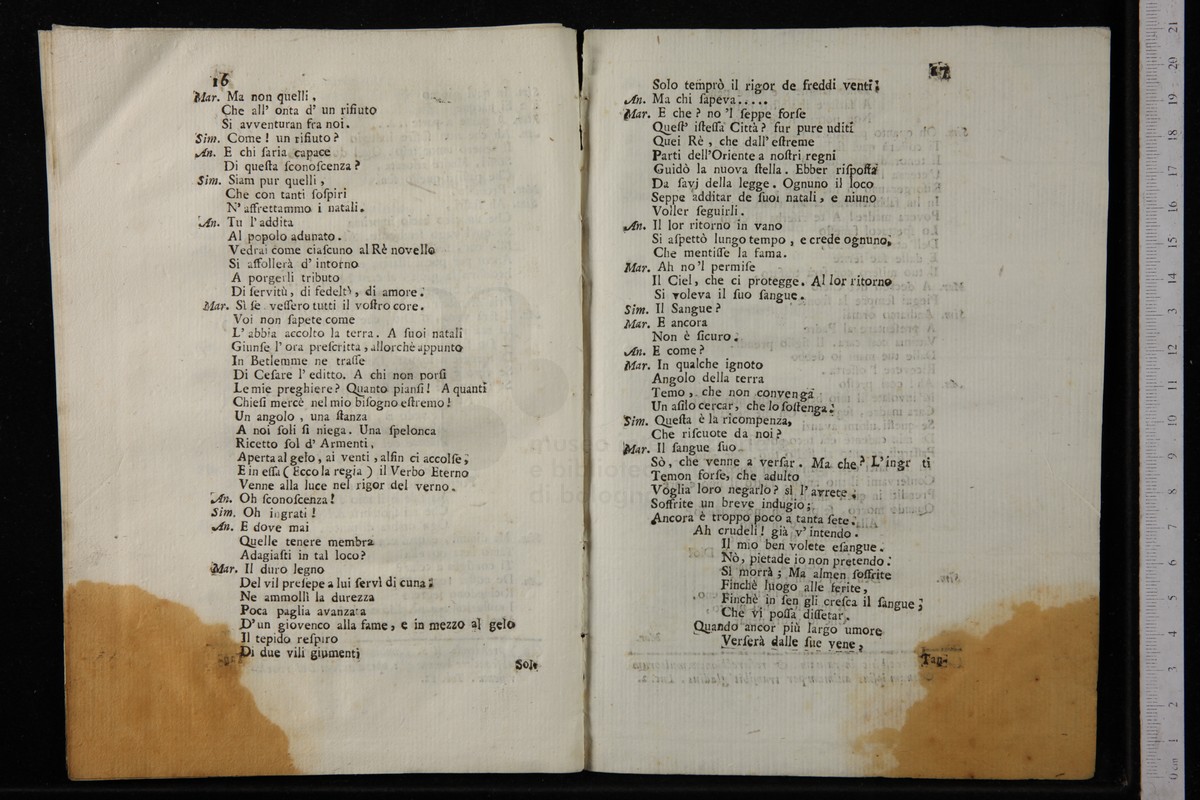 16
Mar. Ma non quelli,
Che all' onta d' un rifiuto
Si avventuran fra noi.
Sim. Come! un rifiuto?
An. E chi ſaria capace
Di queſta ſconoſcenza?
Sim. Siam pur quelli,
Che con tanti ſoſpiri
N' affrettammo i natali.
An. Tu l' addita
Al popolo adunato.
Vedrai come ciaſcuno al Rè novello
Si affollerà d' intorno
A porgerli tributo
Di ſervitù, di fedeltà, di amore.
Mar. Sì ſe veſſero tutti il voſtro core.
Voi non ſapete come
L' abbia accolto la terra. A ſuoi natali
Giunſe l' ora preſcritta, allorchè appunto
In Betlemme ne traſſe
Di Ceſare l' editto. A chi non porſi
Le mie preghiere? Quanto pianſi! A quanti
Chieſi mercè nel mio biſogno eſtremo!
Un angolo, una ſtanza
A noi ſoli ſi niega. Una ſpelonca
Ricetto ſol d' Armenti,
Aperta al gelo, ai venti, alfin ci accolſe,
E in eſſa ( Ecco la regia ) il Verbo Eterno
Venne alla luce nel rigor del verno.
An. Oh ſconoſcenza!
Sim. Oh ingrati!
An. E dove mai
Quelle tenere membra
Adagiaſti in tal loco?
Mar. Il duro legno
Del vil preſepe a lui ſervì di cuna:
Ne ammollì la durezza
Poca paglia avanzata
D' un giovenco alla fame, e in mezzo al gelo
Il tepido reſpiro
Di due vili giumenti
Solo
17
Solo temprò il rigor de freddi venti;
An. Ma chi ſapeva.....
Mar. E che? no 'l ſeppe forſe
Queſt' iſteſſa Città? fur pure uditi
Quei Rè, che dall' eſtreme
Parti dell'Oriente a noſtri regni
Guidò la nuova ſtella. Ebber riſpoſta
Da ſavj della legge. Ognuno il loco
Seppe additar de ſuoi natali, e niuno
Voller ſeguirli.
An. Il lor ritorno in vano
Si aſpettò lungo tempo, e crede ognuno,
Che mentiſſe la fama.
Mar. Ah no 'l permiſe
Il Ciel, che ci protegge. Al lor ritorno
Si voleva il ſuo ſangue.
Sim. Il Sangue?
Mar. E ancora
Non è ſicuro.
An. E come?
Mar. In qualche ignoto
Angolo della terra
Temo, che non convenga
Un aſilo cercar, che lo ſoſtenga.
Sim. Queſta è la ricompenza,
Che riſcuote da noi?
Mar. Il ſangue ſuo
Sò, che venne a verſar. Ma che? L' ingr ti
Temon forſe, che adulto
Voglia loro negarlo? sì l' avrete,
Soffrite un breve indugio;
Ancora è troppo poco a tanta ſete.
Ah crudeli! già v' intendo.
Il mio ben volete eſangue.
Nò, pietade io non pretendo.
Sì morrà; Ma almen ſoffrite
Finchè luogo alle ferite,
Finchè in ſen gli creſca il ſangue,
Che vi poſſa diſſetar.
Quando ancor più largo umore
Verſerà dalle ſue vene,
Tan-
museo
e biblioteca
di bologna